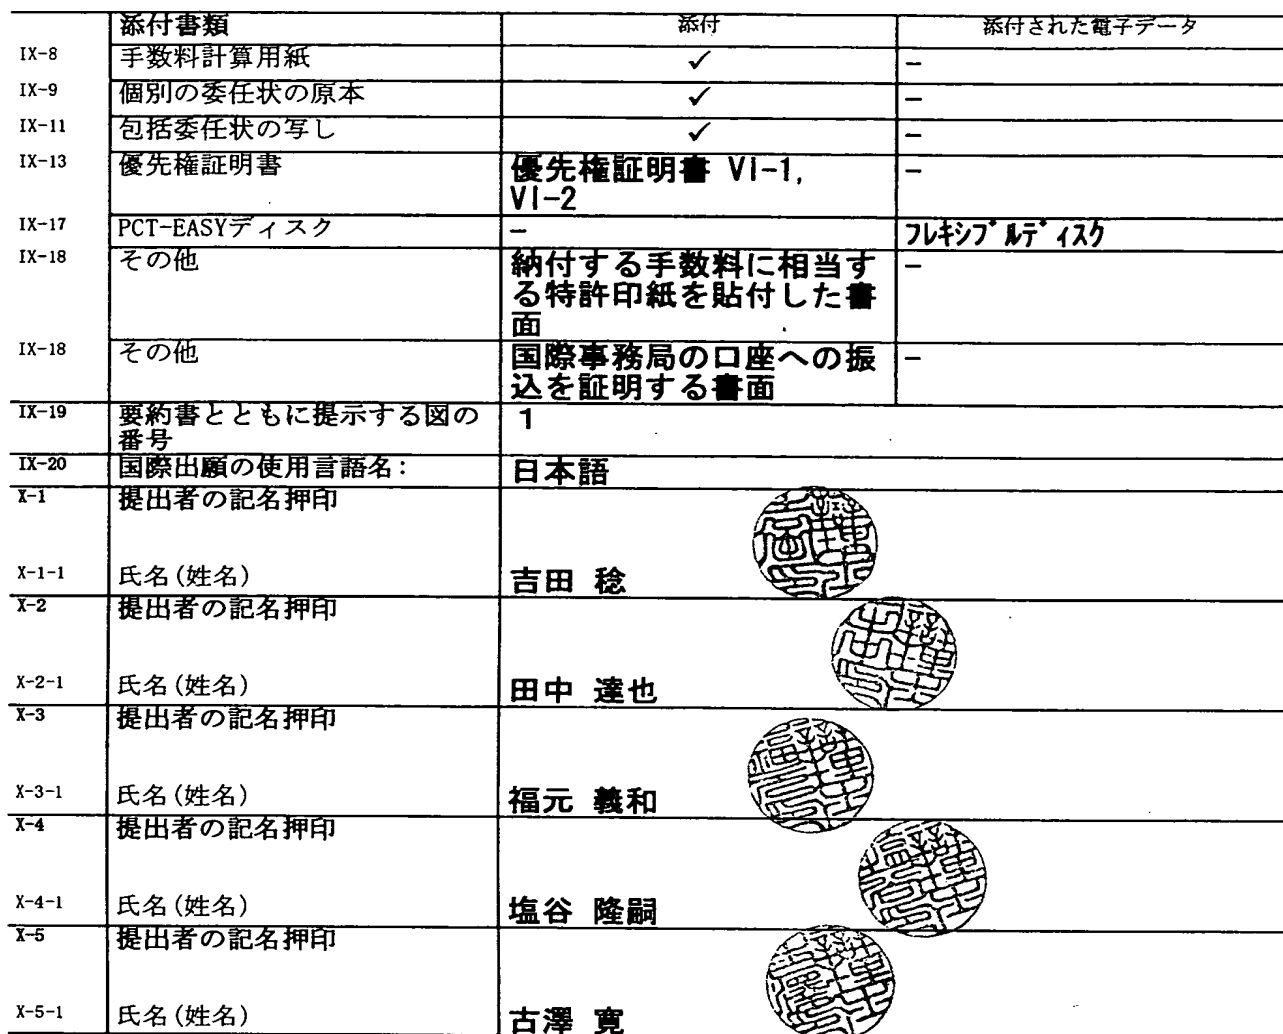 添付書類 添付 添付された電子データ
IX-8 手数料計算用紙 ✓ −
IX-9 個別の委任状の原本 ✓ −
IX-11 包括委任状の写し ✓ −
IX-13 優先権証明書 優先権証明書 VI-1, −
VI-2
IX-17 PCT-EASYディスク − フレキシブルディスク
IX-18 その他 納付する手数料に相当す −
る特許印紙を貼付した書
面
IX-18 その他 国際事務局の口座への振 −
込を証明する書面
IX-19 要約書とともに提示する図の 1
番号
IX-20 国際出願の使用言語名: 日本語
X-1 提出者の記名押印
X-1-1 氏名(姓名) 吉田 稔
X-2 提出者の記名押印
X-2-1 氏名(姓名) 田中 達也
X-3 提出者の記名押印
X-3-1 氏名(姓名) 福元 義和
X-4 提出者の記名押印
X-4-1 氏名(姓名) 塩谷 隆嗣
X-5 提出者の記名押印
X-5-1 氏名(姓名) 古澤 寛